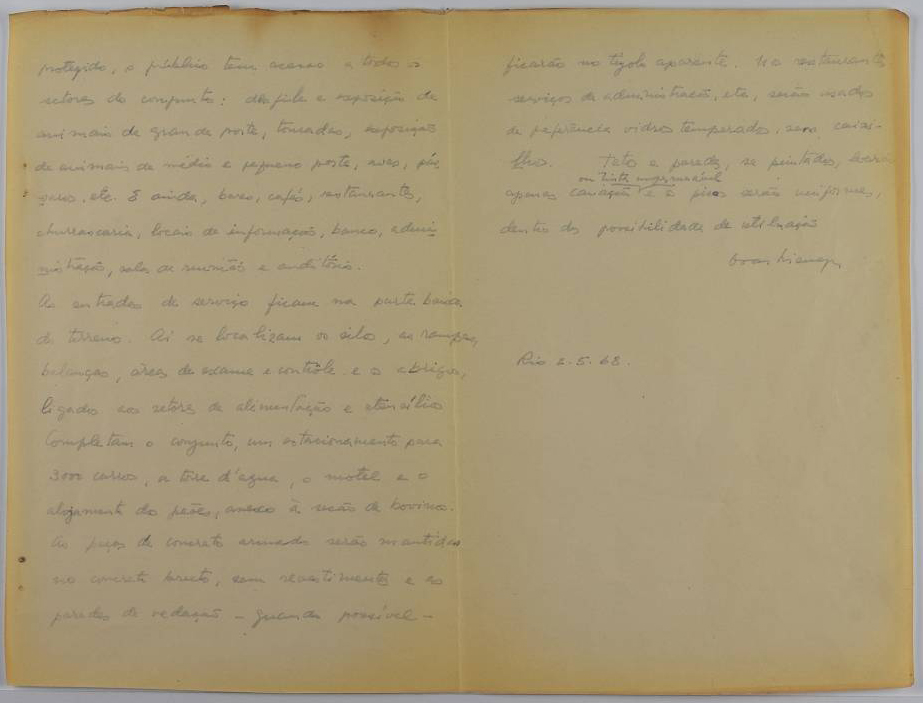 protegido, o público tem acesso a todos os
setores do conjunto: desfile e exposição de
animais de grande porte, touradas, exposição
de animais de médio e pequeno porte, aves, pás-
saros, etc. E ainda, bares, cafés, restaurantes,
churrascaria, locais de informação, banco, admi-
nistração, sala de reunião e auditório.
As entradas de serviço ficam na parte baixa
do terreno. Aí se localizam os silos, as rampas,
balanças, áreas de exame e contrôle e os abrigos,
ligados aos setores de alimentação e utensílios
Completam o conjunto, um estacionamento para
3000 carros, a tôrre d'agua, o motel e o
alojamento dos peões, anexo à seção de bovinos.
As peças de concreto armado serão mantidas
no concreto bruto, sem revestimento e as
paredes de vedação – quando possível –
ficarão no tijolo aparente. No restaurante
serviços de administração, etc, serão usados
de preferência vidros temperados, sem caixi-
lhos. Teto e paredes, se pintados, levarão
ou tinta impermeável
apenas caiação e os pisos serão uniformes,
dentro das possibilidade de utilização
Oscar Niemeyer
Rio 2.5.68.